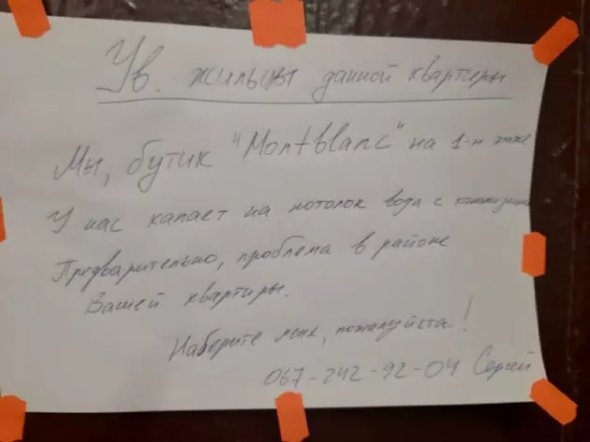 Ув. жильцы данной квартиры
Мы, бутик "Montblanc" на 1-м этаже
У нас капает на потолок вода с канализации
Предварительно, проблема в районе
Вашей квартиры.
Наберите меня, пожалуйста!
067-242-92-04 Сергей